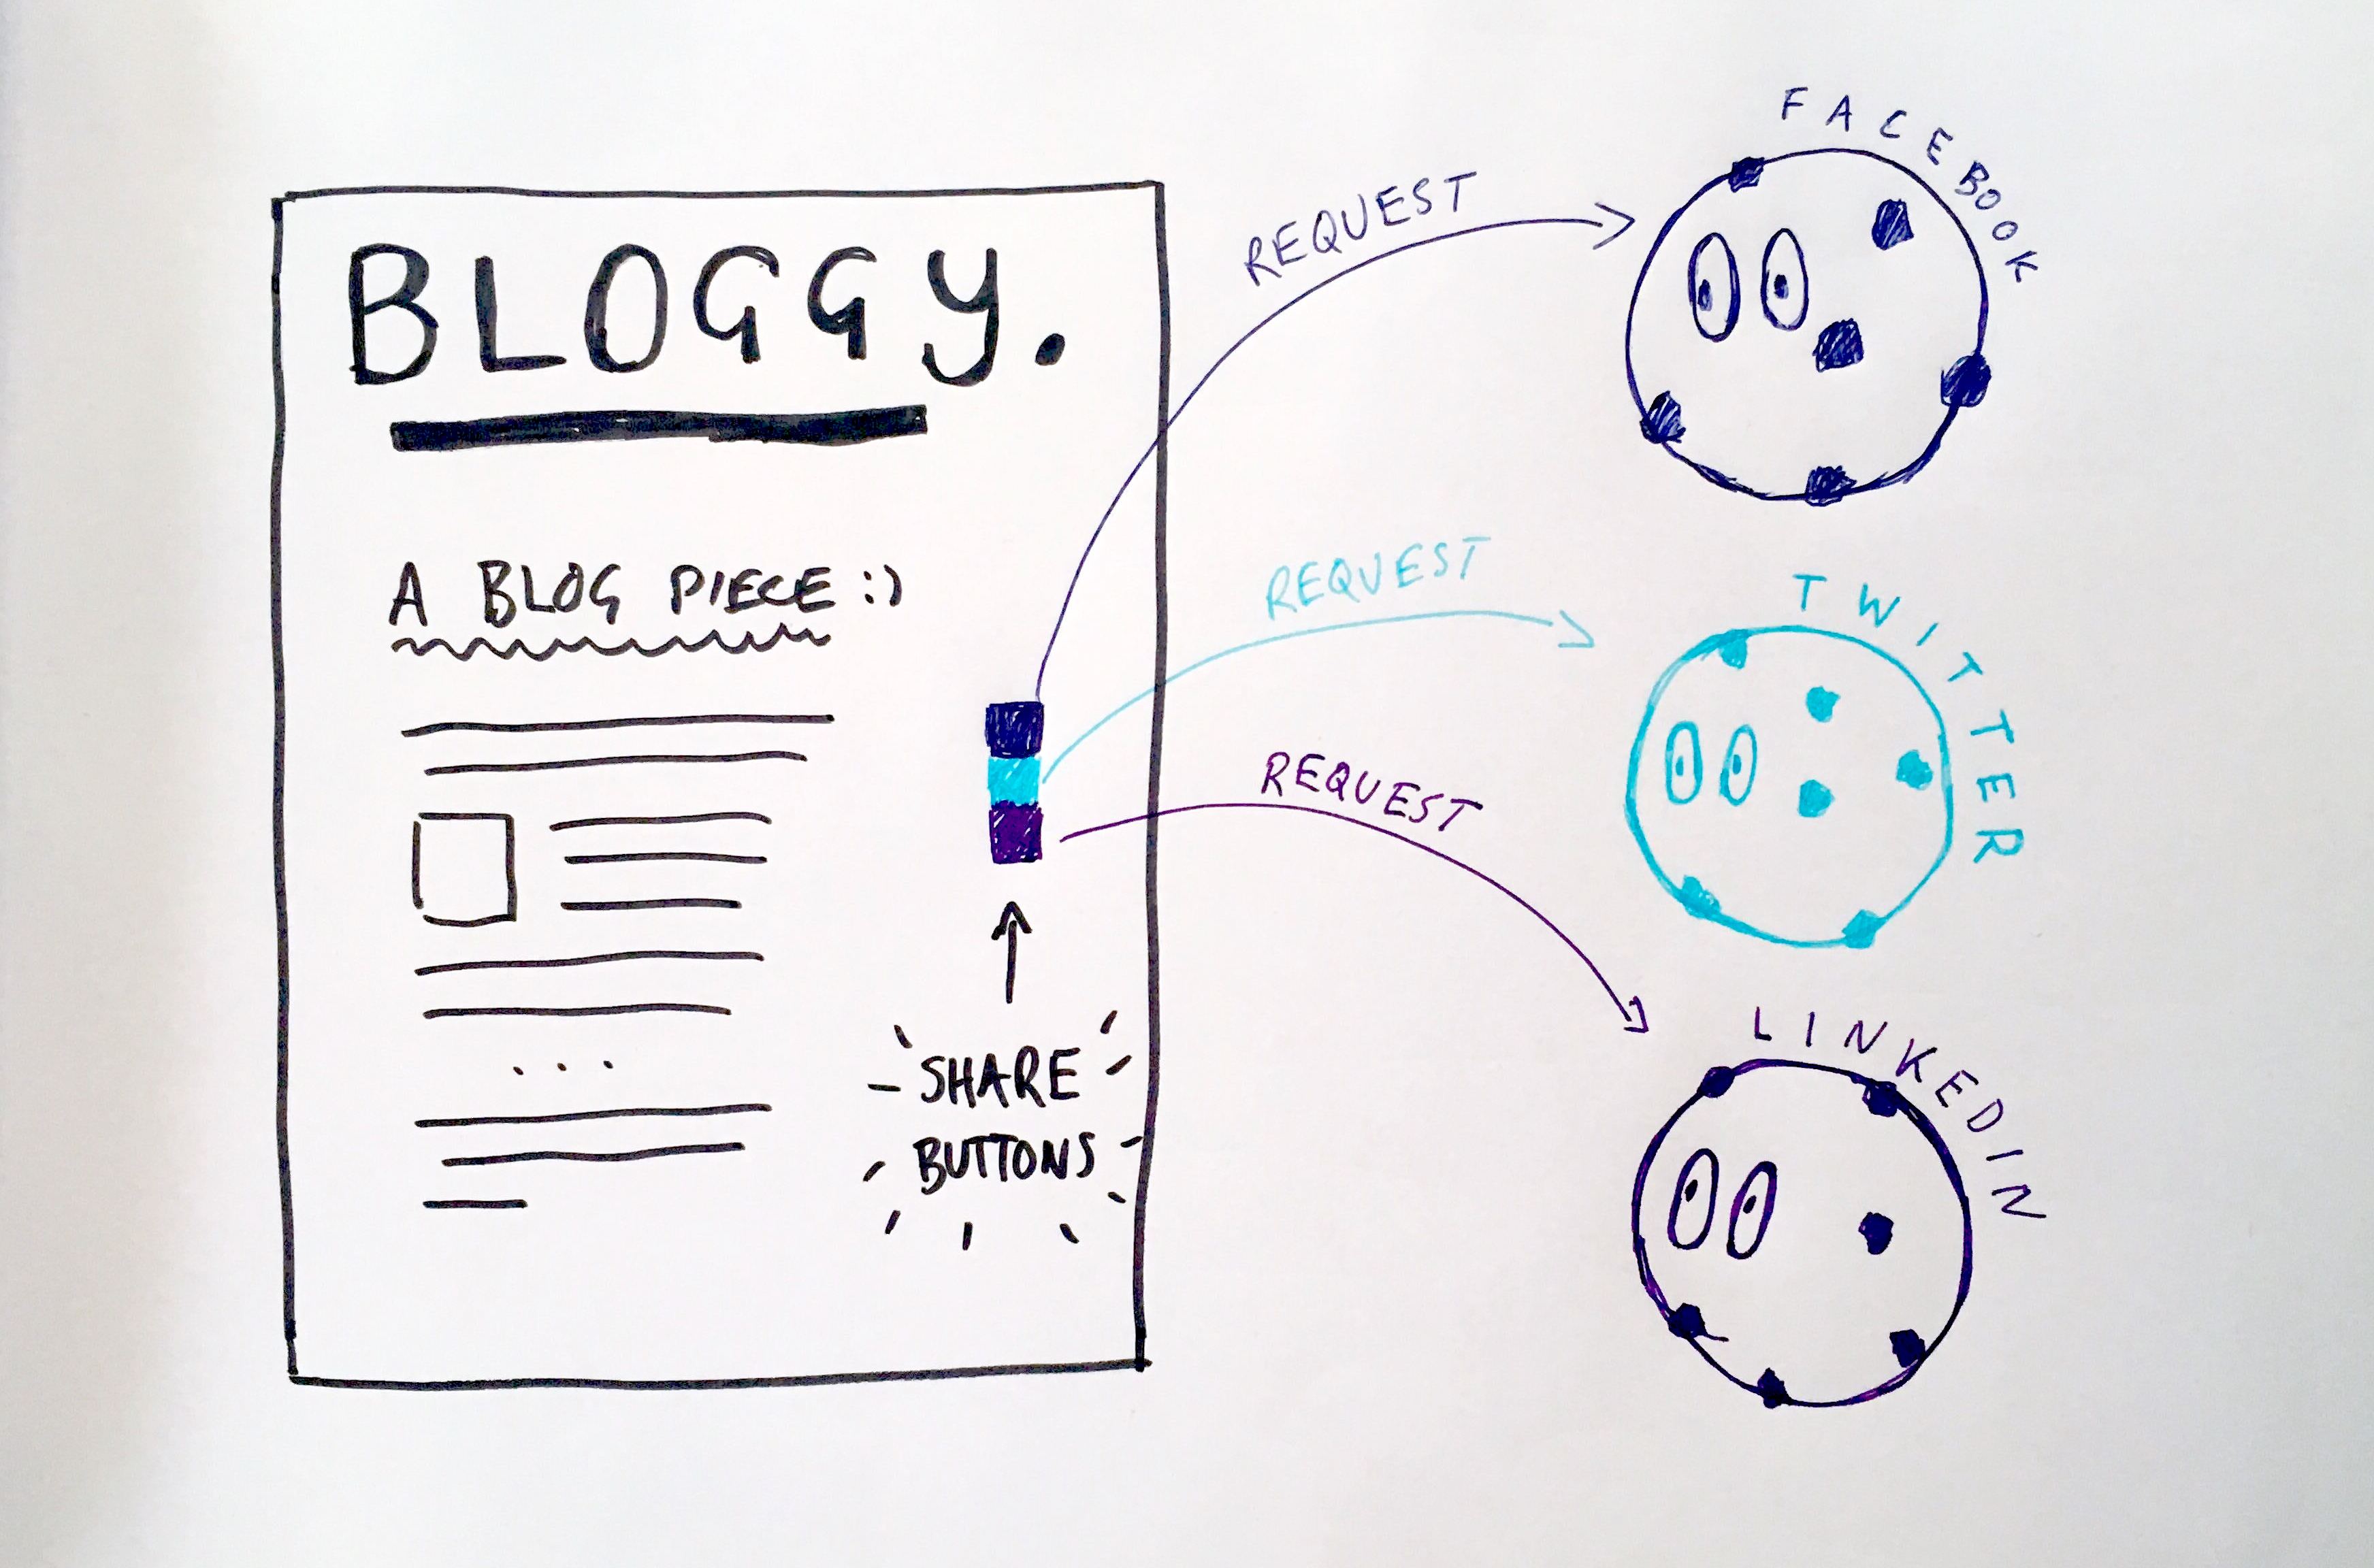 BLOGGY.
A BLOG PIECE :)
...
SHARE
BUTTONS
REQUEST
FACEBOOK
REQUEST
TWITTER
REQUEST
LINKEDIN